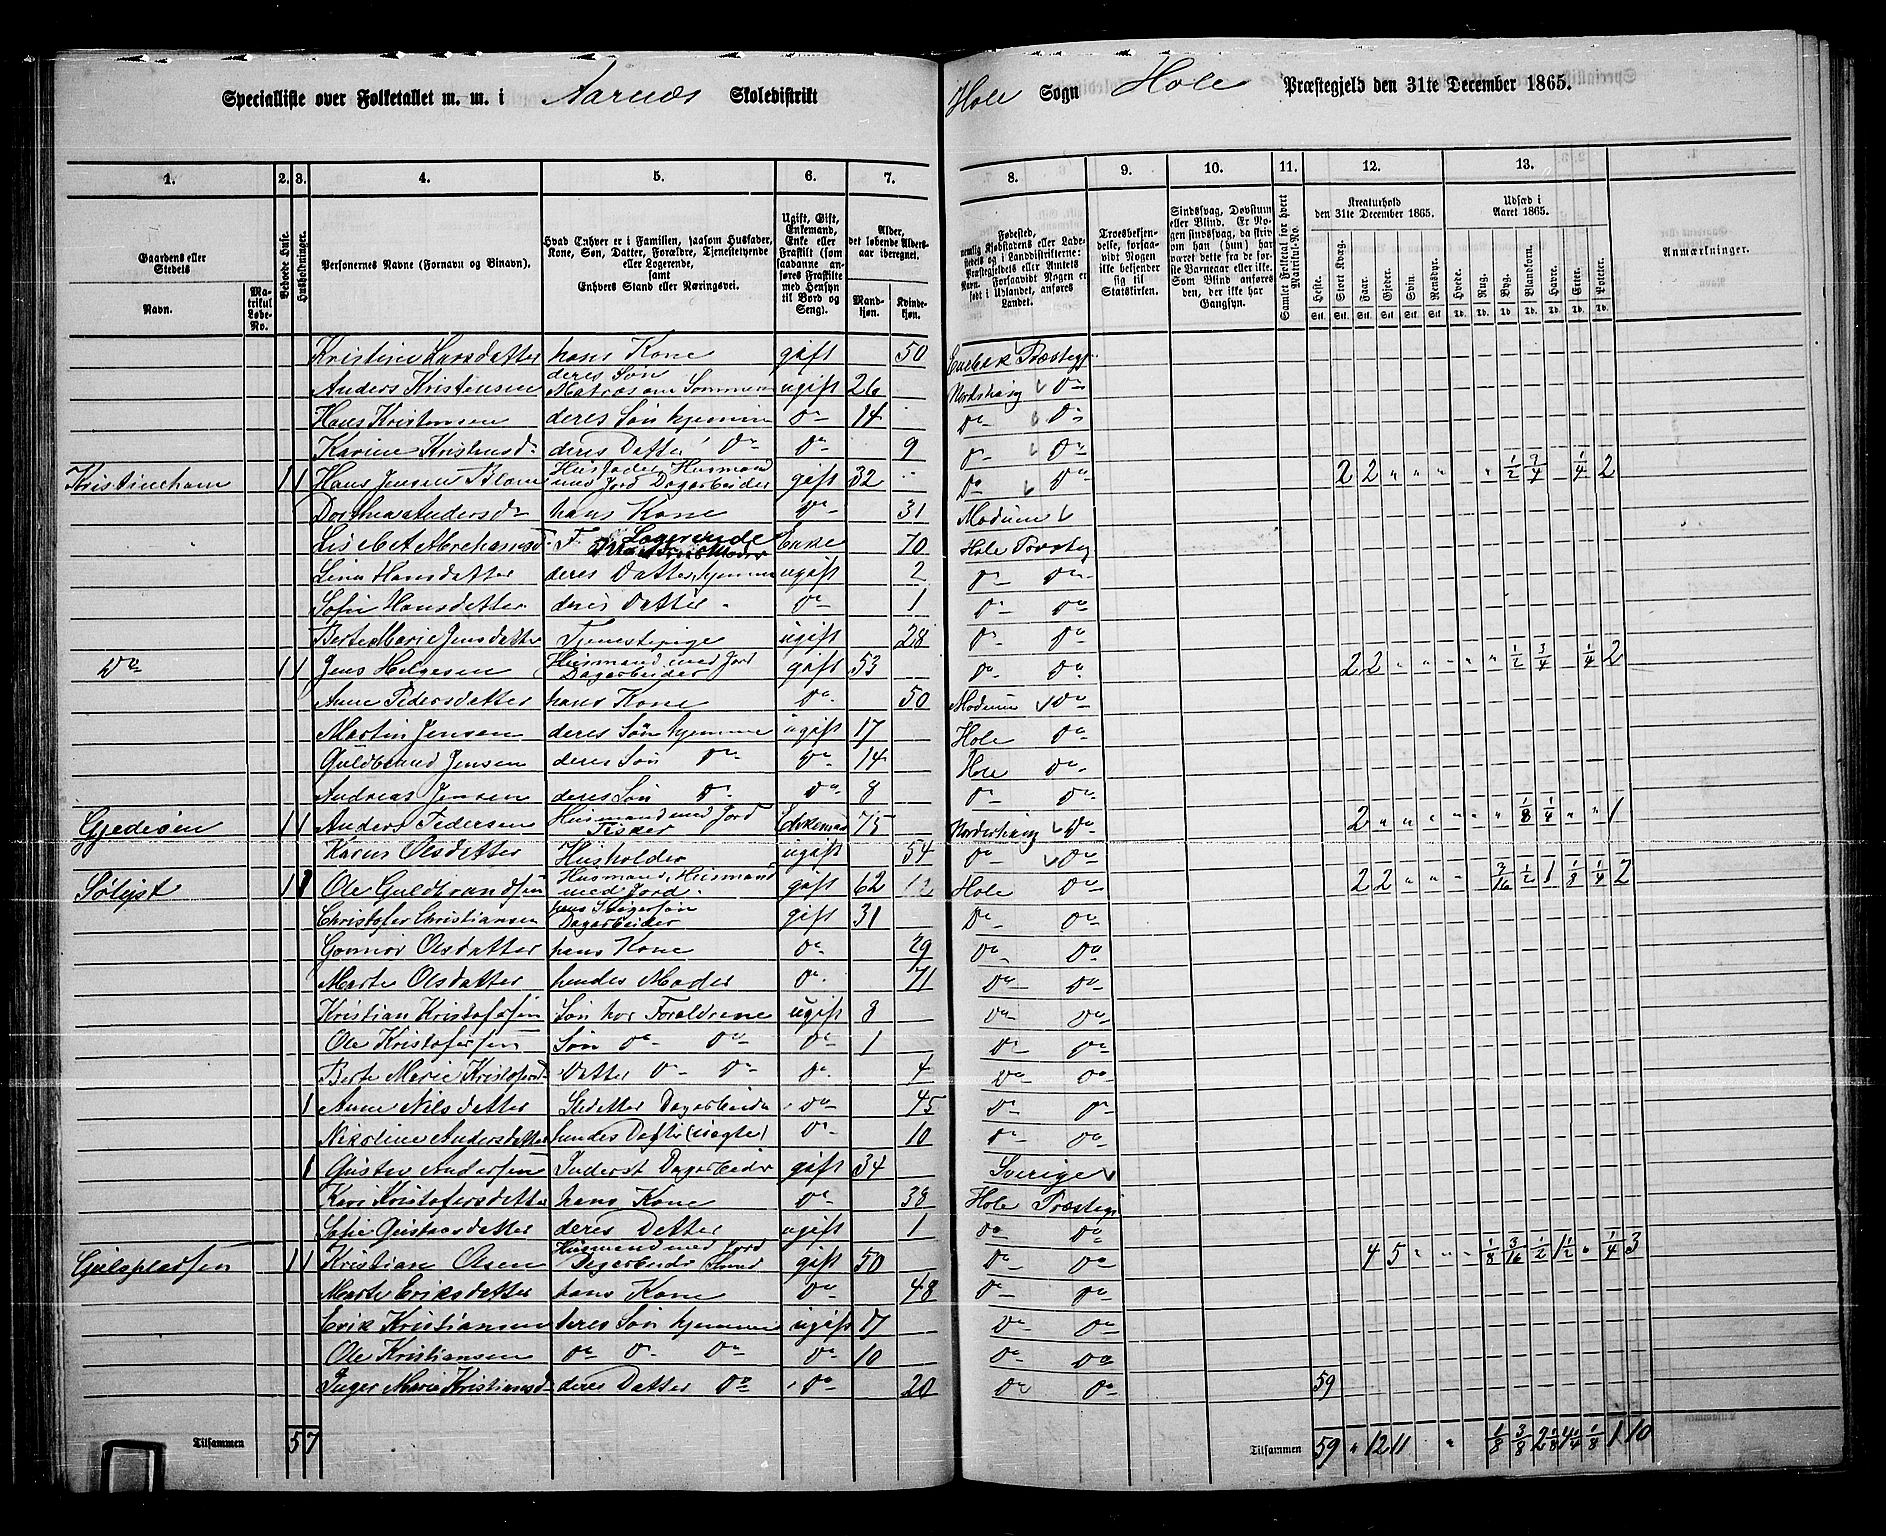 Specialliste over Folketallet m. m. i Aarnæs Skoledistrikt Hole Sogn Hole Præstegjeld den 31te December 1865.
1. 2. 3. 4. 5. 6. 7. 8. 9. 10. 11. 12. 13.
Gaardens eller Stedets
Navn.
Matrikul Løbe-No.
Beboede Huse.
Husholdninger.
Personernes Navne (Fornavn og Binavn).
Hvad Enhver er i Familien, saasom Husfader, Kone, Søn, Datter, Forældre, Tjenestetyende eller Logerende, samt Enhvers Stand eller Næringsvei.
Ugift, Gift, Enkemand, Enke eller Fraskilt (som saadanne anføres Fraskilte med Hensyn til Bord og Seng).
Alder, det løbende Aldersaar iberegnet.
Mandkjøn. Kvindekjøn.
Fødested, nemlig Kjøbstadens eller Ladestedets og i Landdistrikterne: Præstegjeldets eller Amtets Navn. Forsaavidt Nogen er født i Udlandet, anføres Landet.
Troesbekjendelse, forsaavidt Nogen ikke bekjender sig til Statskirken.
Sindssvag, Døvstum eller Blind. Er Nogen sindssvag, da skrives om han (hun) har været dette fra før Barneaar eller ikke. Som Blind anføres den, der ikke har Gangsyn.
Samlet Folketal for hvert Matrikul-No.
Kreaturhold den 31te December 1865.
Heste. Stort Kvæg. Faar. Gjeder. Svin. Rensdyr.
Udsæd i Aaret 1865.
Hvede. Rug. Byg. Blandkorn. Havre. Erter. Poteter.
Anmærkninger.
Kristine Larsdatter hans Kone gift 50 Enebak Præstegj.
Anders Kristensen deres Søn Matros om Sommeren ugift 26 Norderhaug Do
Hans Kristensen deres Søn hjemme Do 14 Do Do
Karine Kristensd. deres Datter Do Do 9 Do Do
Kristineham 1 1 Hans Jensen Husfader Husmand med Jord Dagarbeider gift 32 Do Do 2 2 " " " " 1/2 3/4 1/4 2
Dorthea Andersd. hans Kone Do 31 Modum
Lisebet Abrahamsd. F. Logerende Enke 70 Hole Præsteg
Lina Hansdatter deres Datter hjemme ugift 2 Do Do
Sofie Hansdatter deres Datter Do 1 Do Do
Berte Marie Jensdatter Tjenestepige ugift 28 Do Do
Do 1 1 Jens Helgesen Husmand med Jord Dagarbeider gift 53 Do Do 2 2 " " " " " 1/2 3/4 1/4 2
Anne Pedersdatter hans Kone Do 50 Modum Do
Martin Jensen deres Søn hjemme ugift 17 Hole Do
Guldbrand Jensen deres Søn Do Do 14 Hole Do
Andreas Jensen deres Søn Do Do 8 Do Do
Gjedeøen 1 1 Anders Pedersen Husmand med Jord Fisker Enkemand 75 Norderhaug Do 2 " " " " " " 1/8 1/4 " " 1
Karen Olsdatter Husholder ugift 54 Do Do
Sølyst 1 1 Ole Guldbrandsen Husmand, Husmand med Jord. gift 62 Hole Do 2 2 " " " 3/16 1/2 1 1/8 1/4 2
Christofer Christiansen hans Svigersøn Dagarbeider gift 31 Do Do
Gonnor Olsdatter hans Kone Do 29 Do Do
Marte Olsdatter hendes Moder Do 71 Do Do
Kristian Kristofersen Søn hos Forældrene ugift 3 Do Do
Ole Kristofersen Søn Do Do Do 1 Do Do
Berte Marie Kristofersd. Datter Do Do Do 4 Do Do
1 Anne Nilsdatter Dagarbeider Do 45 Do Do
Nikoline Andersdatter hendes Datter (uægte) Do 10 Do Do
1 Gustav Andersen Inderst Dagarbeider gift 34 Sverige
Kari Kristofersdatter hans Kone Do 38 Hole Præsteg
Sofie Gustavsdatter deres Datter ugift 1 Do Do
1 1 Kristian Olsen Husmand med Jord Dagarbeider Smed gift 50 Do Do 4 5 " " " 1/8 3/16 1/2 1 1/2 " 1/4 3
Marte Eriksdatter hans Kone Do 48 Do Do
Erik Kristiansen deres Søn hjemme ugift 17 Do Do
Ole Kristiansen Do Do Do Do 10 Do Do
Inger Marie Kristiansd. deres Datter Do Do 20 Do Do 59
Tilsammen 5 7 Tilsammen 59 " 12 11 " 1/8 3/8